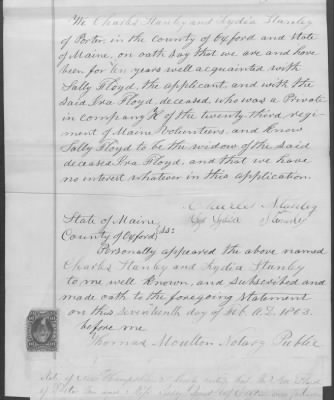 We Charles Stanley and Lydia Stanley
of Porter, in the county of Oxford and State
of Maine, on oath say that we are and have
been for ten years well acquainted with
Sally Floyd, the applicant, and with the
said Ira Floyd, deceased who was a Private
in company K of the twenty third regi-
ment of Maine Volunteers, and know
Sally Floyd to be the widow of the said
deceased Ira Floyd, and that we have
no interest whatever in this application.
Charles Stanley
Lydia Stanley
State of Maine
County of Oxford } ss:
Personally appeared the above named
Charles Stanley and Lydia Stanley
to me well known, and subscribed and
made oath to the foregoing statement
on this seventeenth day of Feb. A.D. 1863.
before me
Thomas Moulton Notary Public